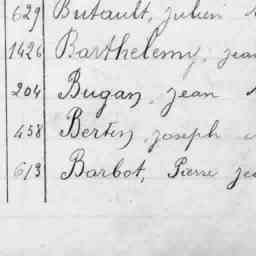 629 Butault, Julien
1426 Barthelemy, Jean
204 Bugan, Jean
458 Bertin, Joseph
613 Barbot, Pierre Je